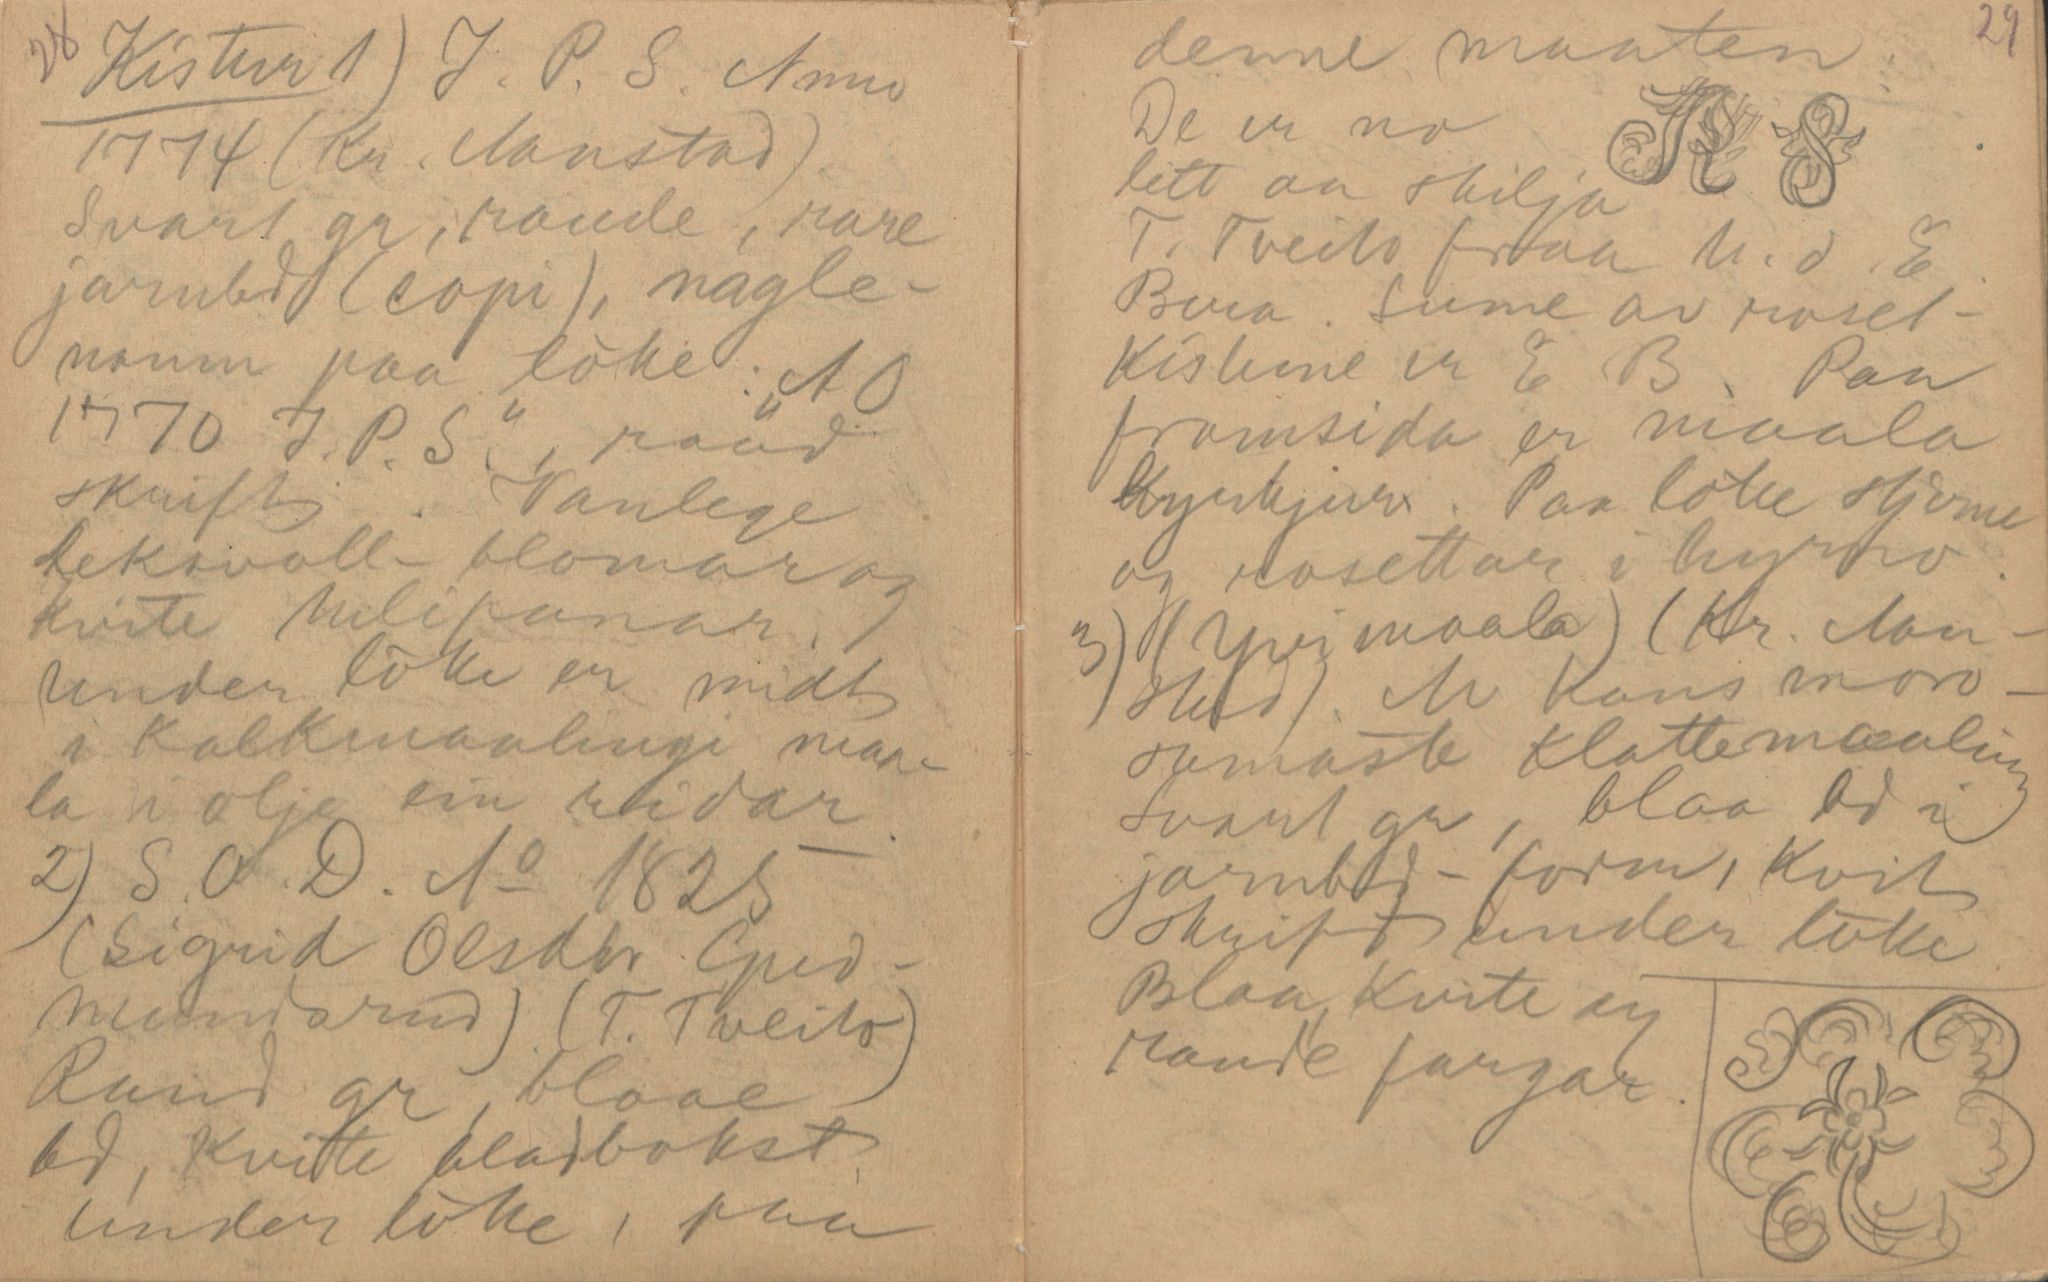 28
Kistur 1) J. P. S. Anno
1774 (Kr. Aanstad).
Svart gr, raude, rare
jarnbd (copi), nagle-
namn paa lōke: "AO
1770 J. P. S.", raud
skrift. Vanlege
blomar og
kvite tulipanar.
Under lōke er midt
i kalkmaalingi maa-
la i olje ein ridar.
2) S. O. D. Ao 1825
(Sigrid Olsdtr.
(T. Tveito)
Raud gr, blaae
bd, kvite bladbokst.
under lōke, paa
29
denne maaten.
De er no
lett aa skilja
T. Tveito fraa N. o. E.
Bura. Sume av roset-
kistune er E B. Paa
framsida er maala
kyrkjur. Paa lōke stjerne
og rosettar i hyrno.
3) (Yvimaala) (Kr. Aan-
stad). Av Hans moro-
samaste klattemaaling
Svart gr, blaa bd i
jarnbd-form, kvit
skrift under lōke
Blaa, kvite og
raude fargar.